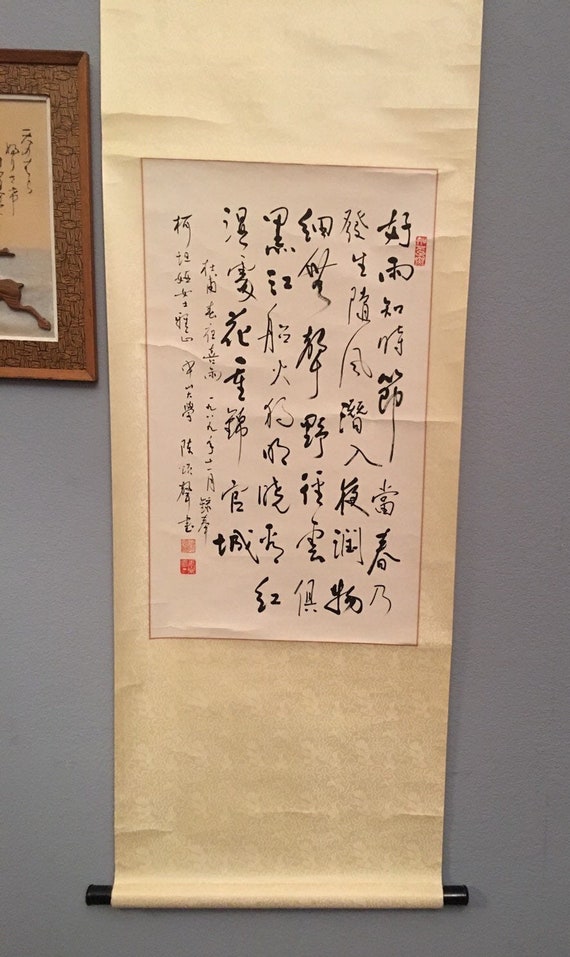 好雨知時節當春乃
發生隨風潛入夜潤物
細無聲野徑雲俱
黑江船火獨明曉看紅
濕處花重錦官城
杜甫春夜喜雨 一九八九年十一月 錄奉
柯坦妮女士雅正 中山大學 陳頌聲書